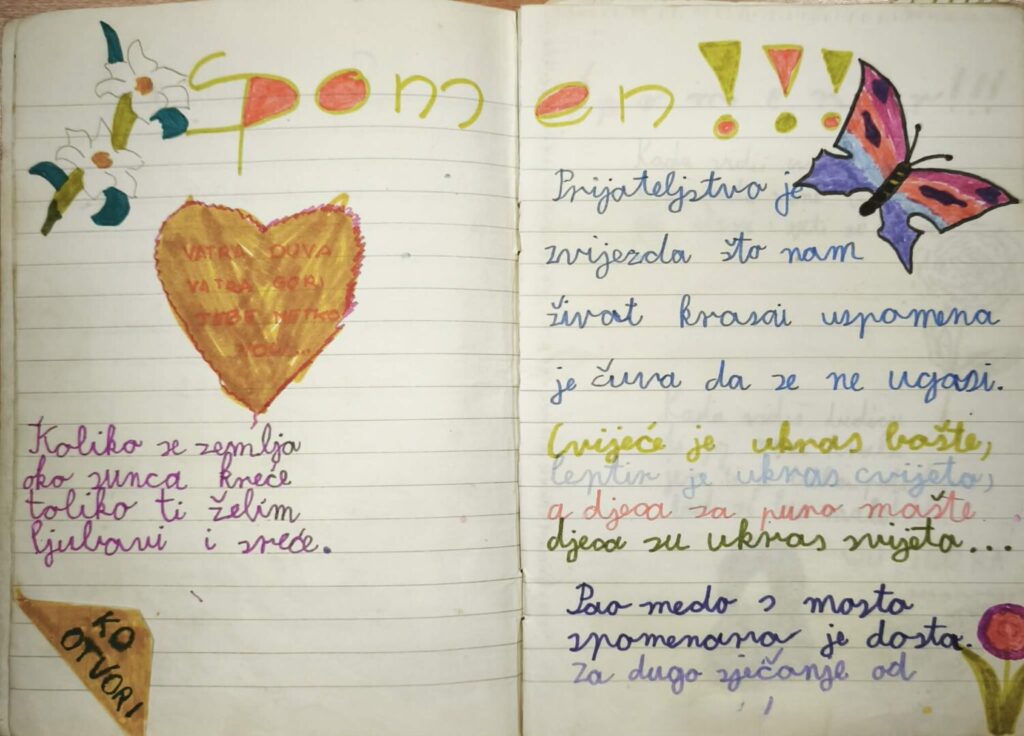 Spomen!!!
VATRA DUVA
VATRA GORI
TEBE NETKO
Koliko se zemlja
oko sunca kreće
toliko ti želim
ljubavi i sreće.
KO
OTVORI
Prijateljstvo je
zvijezda što nam
život krasi uspomena
je čuva da se ne ugasi.
Cvijeće je ukras bašte,
leptir je ukras cvijeta,
a djeca sa puno mašte
djeca su ukras svijeta...
Pao medo s mosta
spomenara je dosta.
Za dugo sječanje od